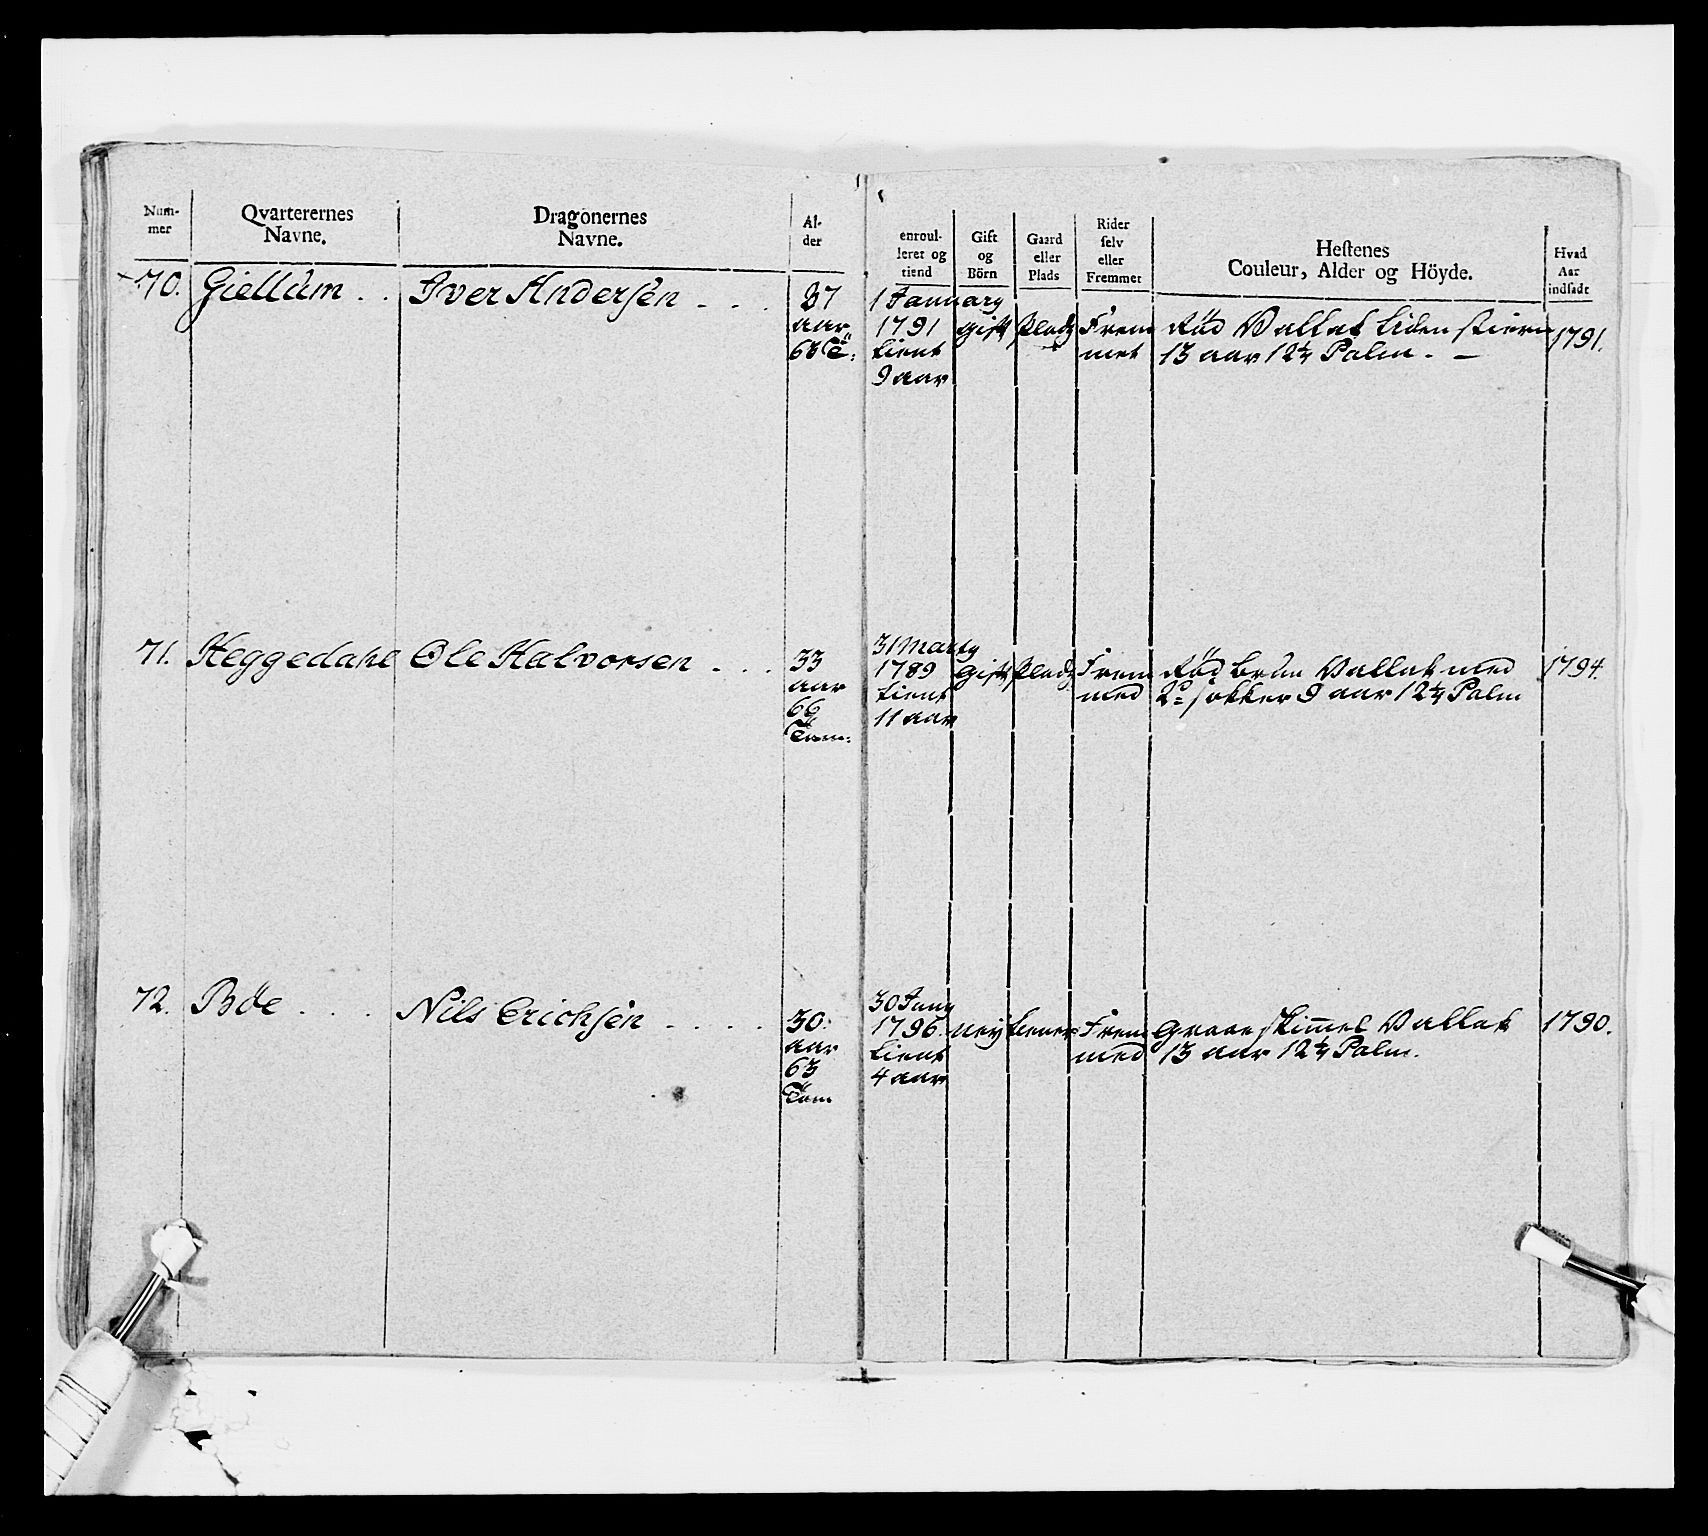 Num-
mer
Qvarterernes
Navne.
Dragonernes
Navne.
Al-
der
enroul-
leret og
tiend
Gift
og
Börn
Gaard
eller
Plads
Rider
selv
eller
Fremmet
Hestenes
Couleur, Alder og Höyde.
Hvad
Aar
indsadt
70. Giellum . . Iver Andersen . . . 37
aar
63 T:
1 January
1791
tient
9 aar
gift
Pladz
Frem
met
Rød Vallak liden stiern
13 aar 12¼ Palm. –
1791.
71. Heggedahl Ole Halvorsen . . . 33
aar
66
Tom:
31 Marty
1789
tient
11 aar
gift
Pladz
Frem
med
Rød brun Vallak med
2de sokker 9 aar 12¼ Palm
1794.
72. Böe . . . Nils Erichsen . . . . 30.
aar
63
Tom
30 Juny
1796.
tient
4 aar
ney
tiener
Frem
med
graae skimmel Vallak
13 aar 12¼ Palm.
1790.